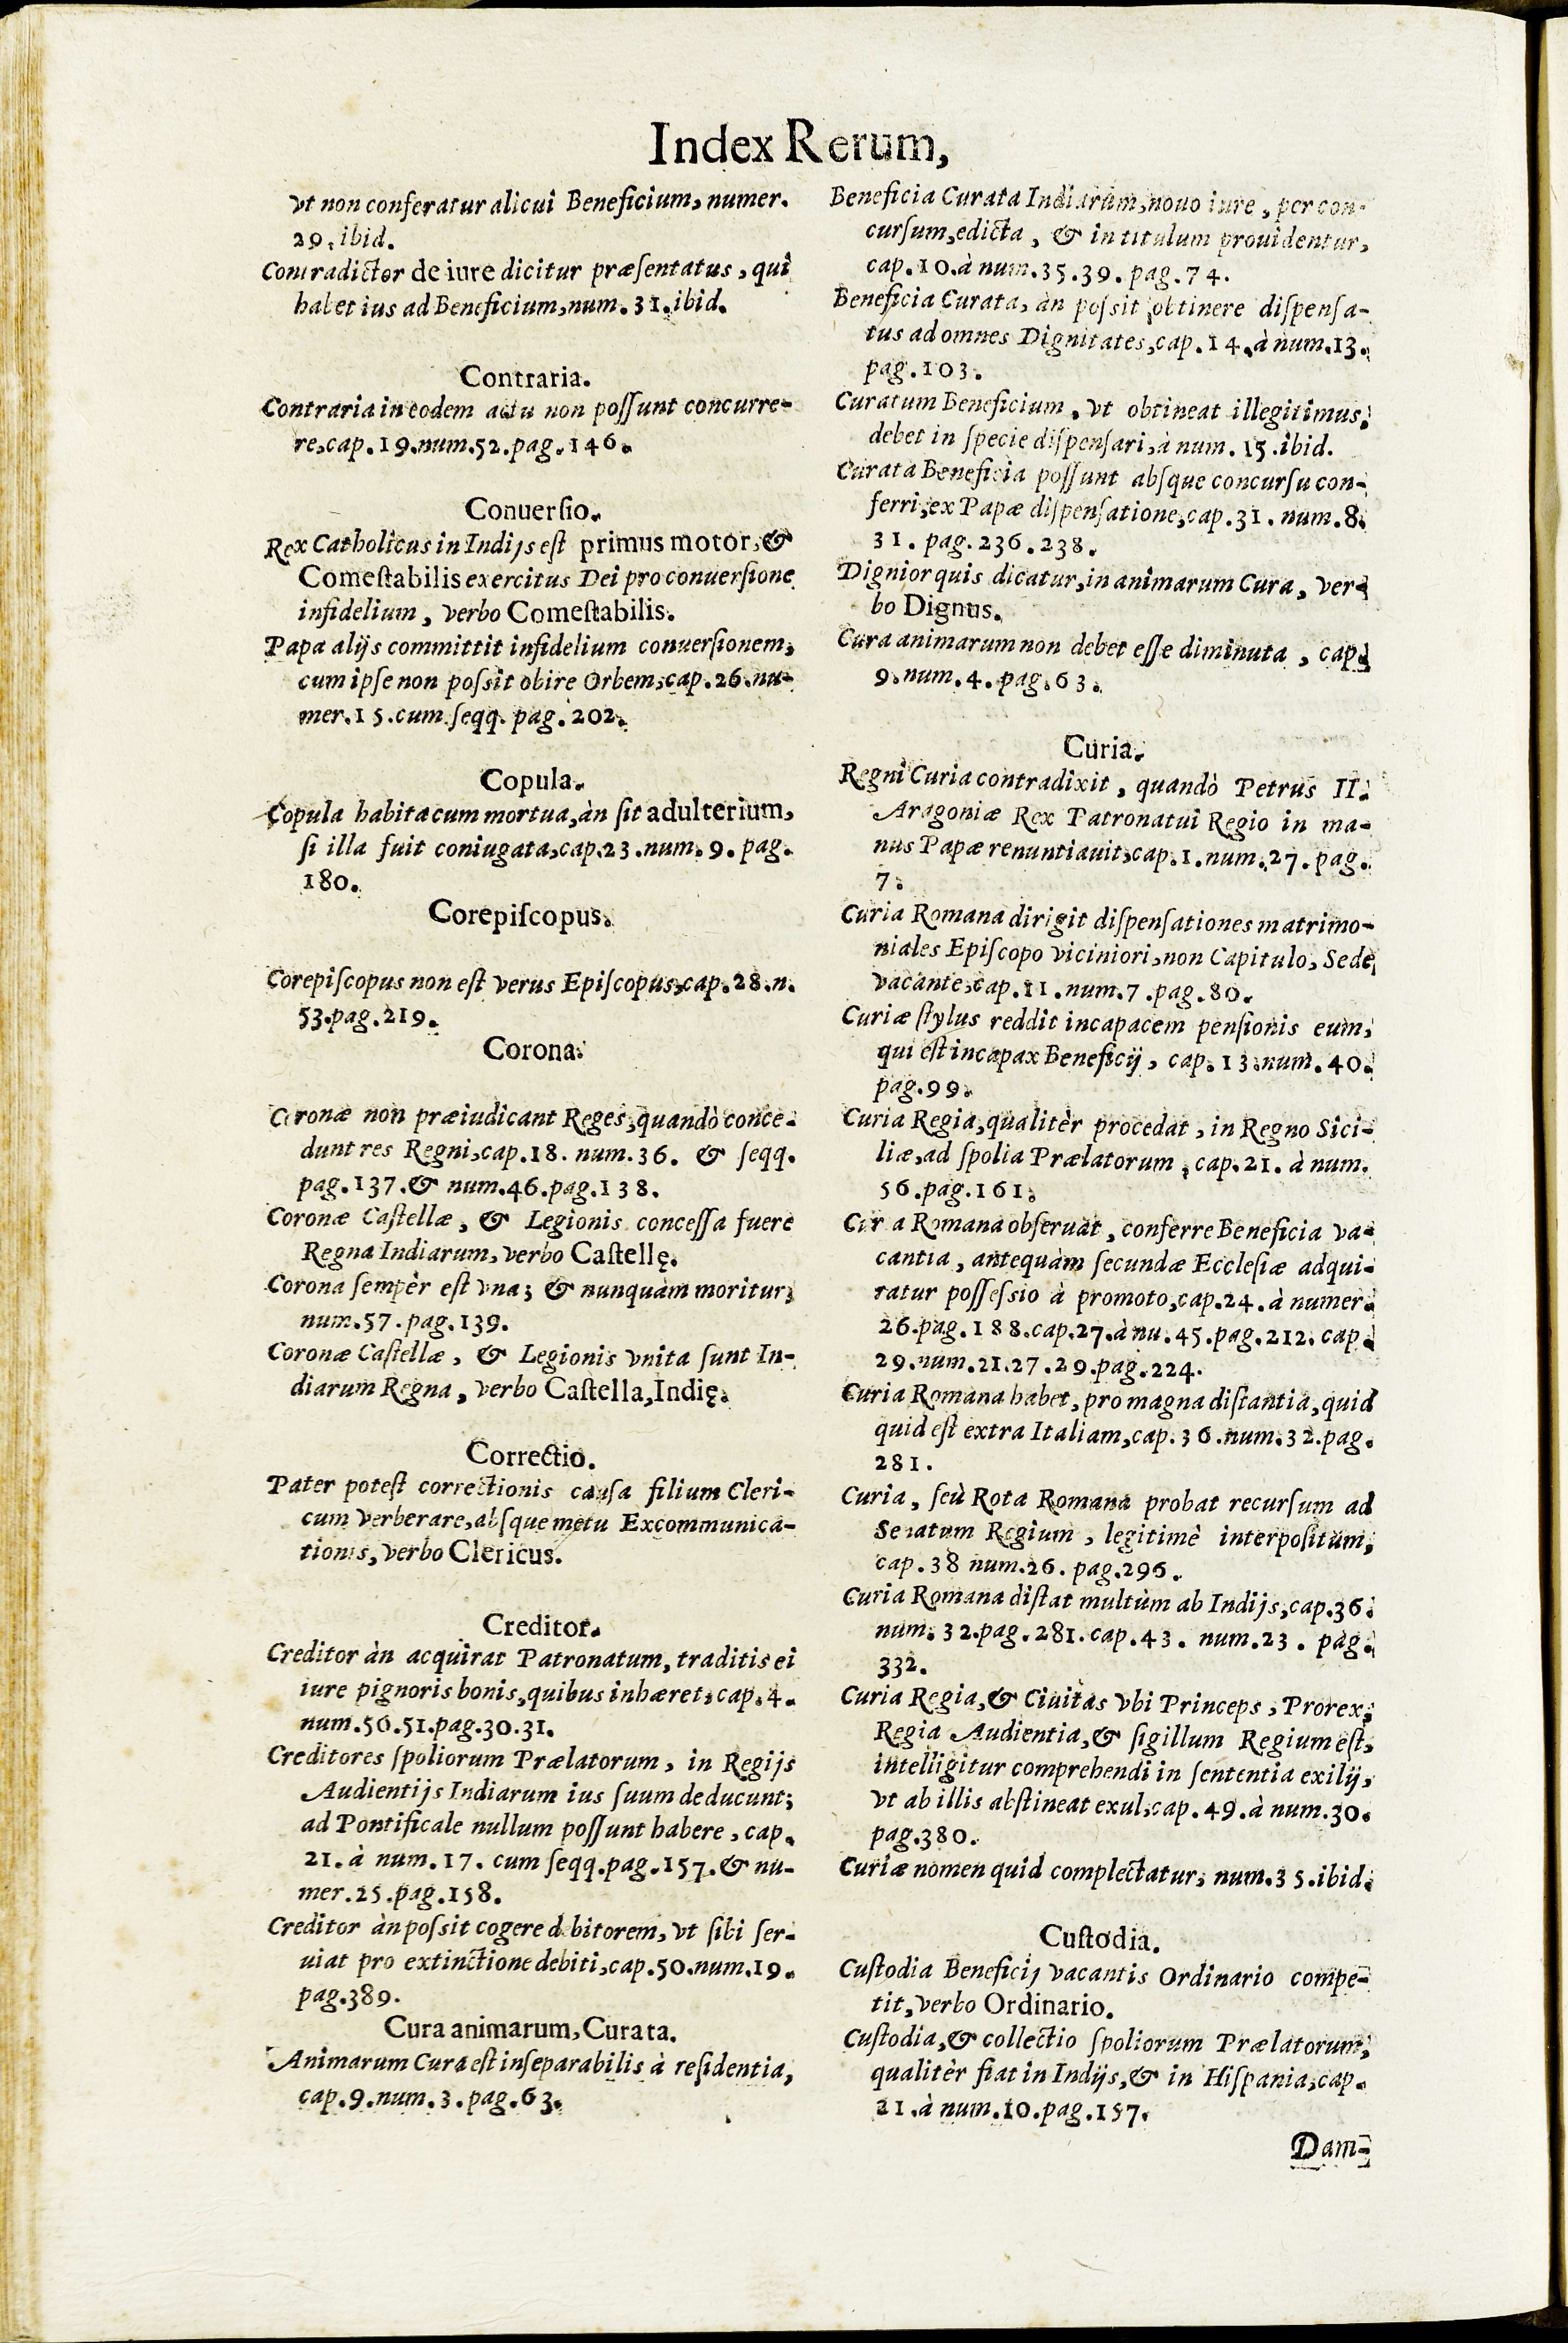 Index Rerum,
vt non conferatur alicui Beneficium, numer.
29. ibid.
Contradictor de iure dicitur præſentatus, qui
habet ius ad Beneficium, num. 31. ibid.
Contraria.
Contraria in eodem actu non poſſunt concurre-
re, cap. 19. num. 52. pag. 146.
Conuerſio.
Rex Catholicus in Indijs eſt primus motor, &
Comeſtabilis exercitus Dei pro conuerſione
infidelium, verbo Comeſtabilis.
Papa alijs committit infidelium conuerſionem,
cum ipſe non poſsit obire Orbem, cap. 26. nu-
mer. 15. cum ſeqq. pag. 202.
Copula.
Copula habita cum mortua, àn ſit adulterium,
ſi illa fuit coniugata, cap. 23. num. 9. pag.
180.
Corepiſcopus.
Corepiſcopus non eſt verus Epiſcopus, cap. 28. n.
53. pag. 219.
Corona.
Coronæ non præiudicant Reges, quandò conce-
dunt res Regni, cap. 18. num. 36. & ſeqq.
pag. 137. & num. 46. pag. 138.
Coronæ Caſtellæ, & Legionis conceſſa fuere
Regna Indiarum, verbo Caſtellę.
Corona ſempèr eſt vna; & nunquàm moritur,
num. 57. pag. 139.
Coronæ Caſtellæ, & Legionis vnita ſunt In-
diarum Regna, verbo Caſtella, Indię.
Correctio.
Pater poteſt correctionis cauſa filium Cleri-
cum verberare, abſque metu Excommunica-
tionis, verbo Clericus.
Creditor.
Creditor àn acquirat Patronatum, traditis ei
iure pignoris bonis, quibus inhæret, cap. 4.
num. 50. 51. pag. 30. 31.
Creditores ſpoliorum Prælatorum, in Regijs
Audientijs Indiarum ius ſuum deducunt;
ad Pontificale nullum poſſunt habere, cap.
21. à num. 17. cum ſeqq. pag. 157. & nu-
mer. 25. pag. 158.
Creditor àn poſsit cogere debitorem, vt ſibi ſer-
uiat pro extinctione debiti, cap. 50. num. 19.
pag. 389.
Cura animarum, Curata.
Animarum Cura eſt inſeparabilis à reſidentia,
cap. 9. num. 3. pag. 63.
Beneficia Curata Indiarum, nouo iure, per con-
curſum, edicta, & in titulum prouidentur,
cap. 10. à num. 35. 39. pag. 74.
Beneficia Curata, àn poſsit obtinere diſpenſa-
tus ad omnes Dignitates, cap. 14. à num. 13.
pag. 103.
Curatum Beneficium, vt obtineat illegitimus,
debet in ſpecie diſpenſari, à num. 15. ibid.
Curata Beneficia poſſunt abſque concurſu con-
ferri, ex Papæ diſpenſatione, cap. 31. num. 8.
31. pag. 236. 238.
Dignior quis dicatur, in animarum Cura, ver-
bo Dignus.
Cura animarum non debet eſſe diminuta, cap.
9. num. 4. pag. 63.
Curia.
Regni Curia contradixit, quandò Petrus II.
Aragoniæ Rex Patronatui Regio in ma-
nus Papæ renuntiauit, cap. 1. num. 27. pag.
7.
Curia Romana dirigit diſpenſationes matrimo-
niales Epiſcopo viciniori, non Capitulo, Sede
vacante, cap. 11. num. 7. pag. 80.
Curiæ ſtylus reddit incapacem penſionis eum,
qui eſt incapax Beneficij, cap. 13. num. 40.
pag. 99.
Curia Regia, qualitèr procedat, in Regno Sici-
liæ, ad ſpolia Prælatorum, cap. 21. à num.
56. pag. 161.
Curia Romana obſeruat, conferre Beneficia va-
cantia, antequàm ſecundæ Eccleſiæ adqui-
ratur poſſeſsio à promoto, cap. 24. à numer.
26. pag. 188. cap. 27. à nu. 45. pag. 212. cap.
29. num. 21. 27. 29. pag. 224.
Curia Romana habet, pro magna diſtantia, quid
quid eſt extra Italiam, cap. 36. num. 32. pag.
281.
Curia, ſeù Rota Romana probat recurſum ad
Senatum Regium, legitimè interpoſitum,
cap. 38 num. 26. pag. 296.
Curia Romana diſtat multùm ab Indijs, cap. 36.
num. 32. pag. 281. cap. 43. num. 23. pag.
332.
Curia Regia, & Ciuitas vbi Princeps, Prorex,
Regia Audientia, & ſigillum Regium eſt,
intelligitur comprehendi in ſententia exilij,
vt ab illis abſtineat exul, cap. 49. à num. 30.
pag. 380.
Curiæ nomen quid complectatur, num. 35. ibid.
Cuſtodia.
Cuſtodia Beneficij vacantis Ordinario compe-
tit, verbo Ordinario.
Cuſtodia, & collectio ſpoliorum Prælatorum,
qualitèr fiat in Indijs, & in Hiſpania, cap.
21. à num. 10. pag. 157.
Dam-